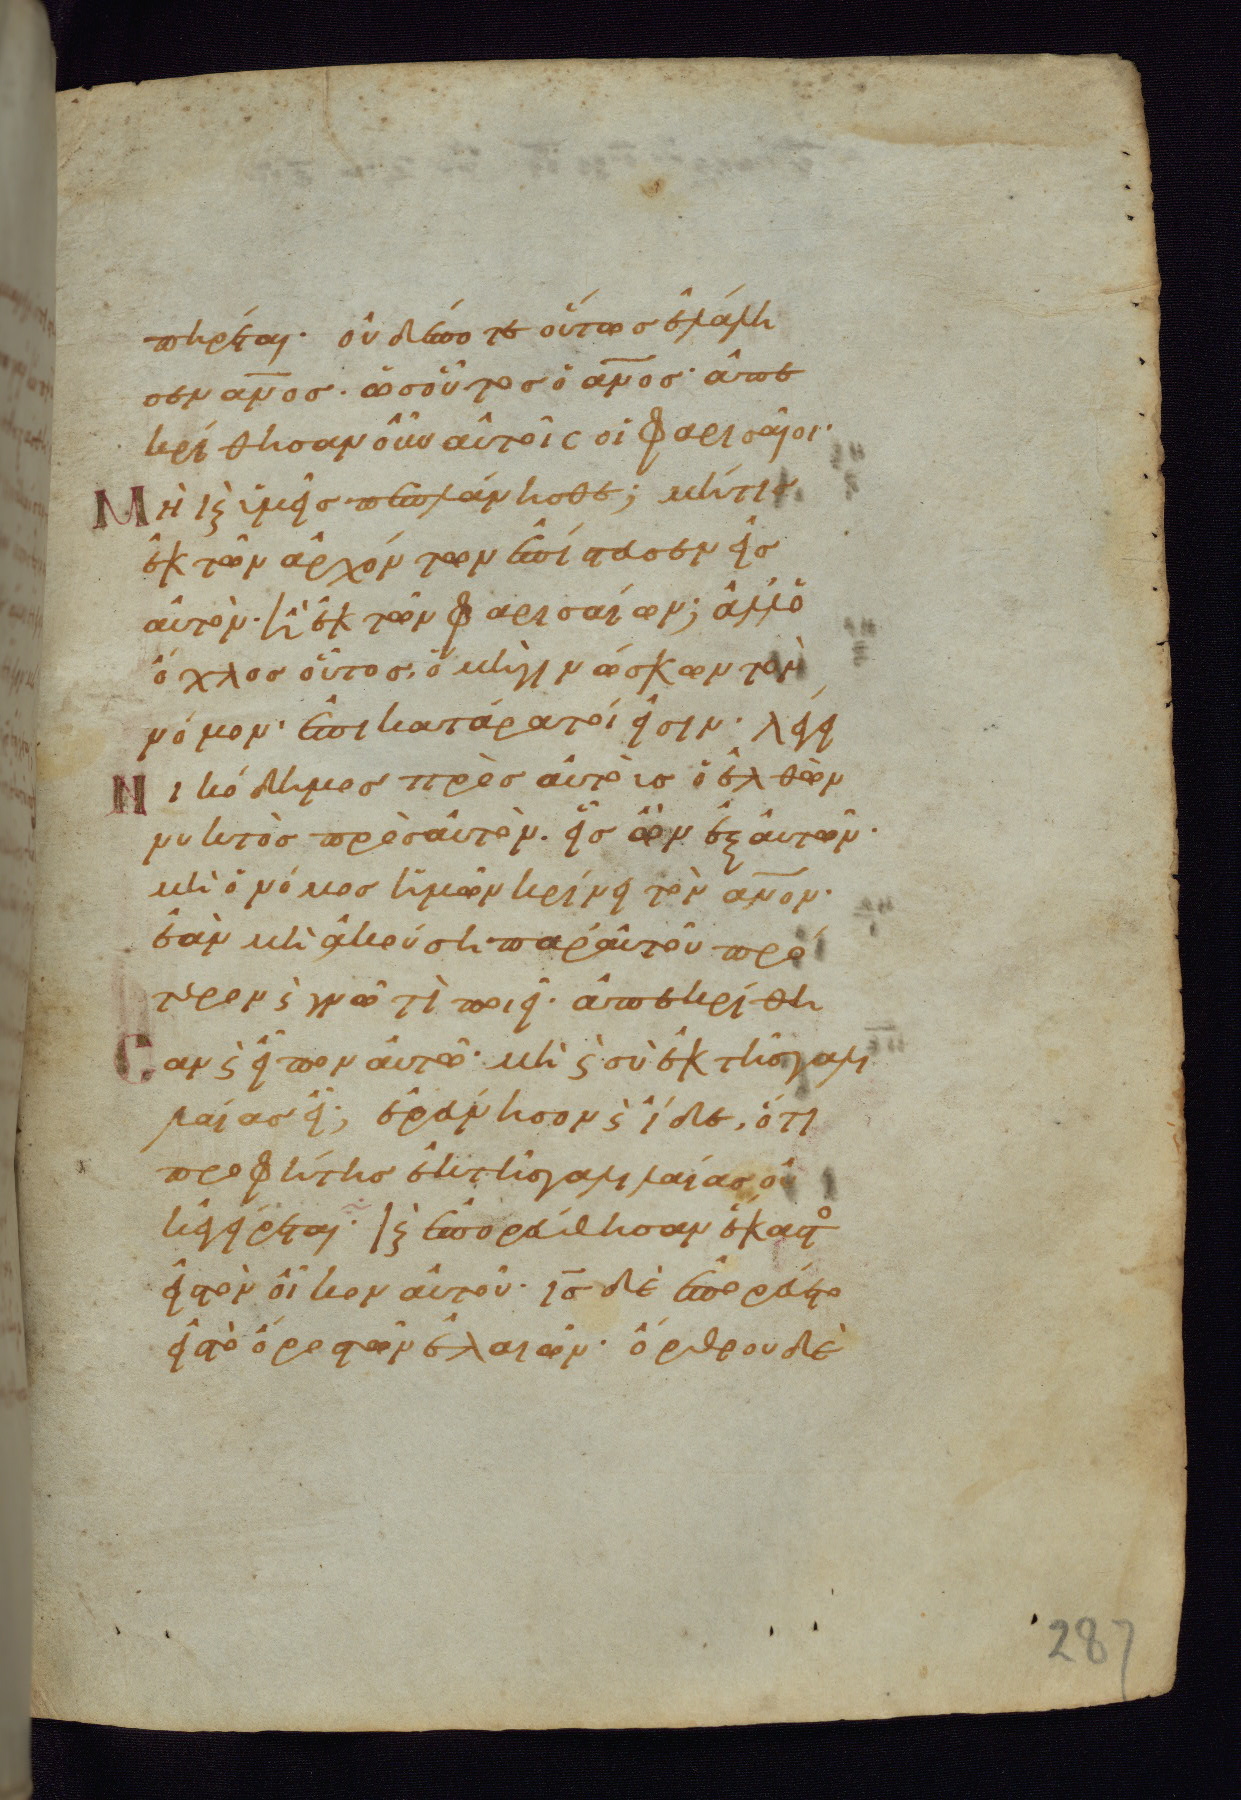 πηρέται· οὐδέποτε οὕτως ἐλάλη
σεν ἄν̅ος· ὡς οὗτος ὁ ἄν̅ος· ἀπε
κρίθησαν οὖν αὐτοῖς οἱ φαρισαῖοι·
Μὴ κ̀ ὑμεῖς πεπλάνησθε; μήτις
ἐκ τῶν ἀρχόντων ἐπίστευσεν εἰς
αὐτὸν· ἢ ἐκ τῶν φαρισαίων; ἀλλ' ὁ
ὄχλος οὗτος, ὁ μὴ γινώσκων τὸν
νόμον· ἐπικατάρατοί εἰσιν· λέγει
Νικόδημος πρὸς αὐτοὺς ὁ ἐλθὼν
νυκτὸς πρὸς αὐτὸν· εἷς ὢν ἐξ αὐτῶν·
μὴ ὁ νόμος ἡμῶν κρίνει τὸν ἄν̅ον·
ἐὰν μὴ ἀκούσῃ παρ' αὐτοῦ πρό
τερον ϗ γνῷ τί ποιεῖ· ἀπεκρίθη
Σαν ϗ εἶπον αὐτῷ· μὴ ϗ σὺ ἐκ τῆς γαλι
λαίας εἶ; ἐρεύνησον ϗ ἴδε, ὅτι
προφήτης ἐκ τῆς γαλιλαίας οὐ
κ ἐγήγερται· ϗ ἐπορεύθησαν ἕκαστο
εἰς τὸν οἶκον αὐτοῦ· ι̅ς̅ δὲ ἐπορεύετο
εἰς τὸ ὄρος τῶν ἐλαιῶν· ὄρθρου δὲ
287